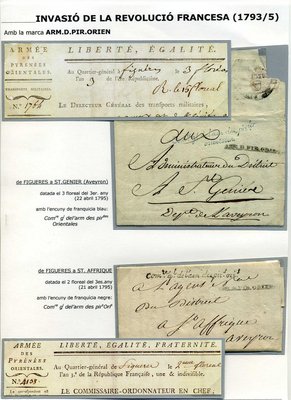 INVASIÓ DE LA REVOLUCIÓ FRANCESA (1793/5)
Amb la marca ARM.D.PIR.ORIEN
ARMÉE
DES
PYRÉNÉES
ORIENTALES.
TRANSPORTS MILITAIRES.
LIBERTÉ, ÉGALITÉ.
Au Quartier-général à figueres le 3 floréal
l'an 3 de l'ère Républicaine.
LE DIRECTEUR GÉNÉRAL des transports militaires,
aux
ARM.D.PIR.ORIEN
Administrateurs du District
A St Genies
Dept de l'aveyron
de FIGUERES a ST.GENIER (Aveyron)
datada el 3 floreal del 3er. any
(22 abril 1795)
amb l'encuny de franquicia blau:
Comre gl def'arm des pirées
Orientales
de FIGUERES a ST. AFFRIQUE
datada el 2 floreal del 3es.any
(21 abril 1795)
amb l'encuny de franquicia negre:
Comre gl def'arm des pir Orif
A l'agent
du District
a St affrique
aveyron
ARMÉE
DES
PYRÉNÉES
ORIENTALES.
N.° 4103
LIBERTÉ, ÉGALITÉ, FRATERNITÉ.
Au Quartier-Général de figueres le 2 floréal
l'an 3.e de la République Française, une & indivisible.
LE COMMISSAIRE-ORDONNATEUR EN CHEF,